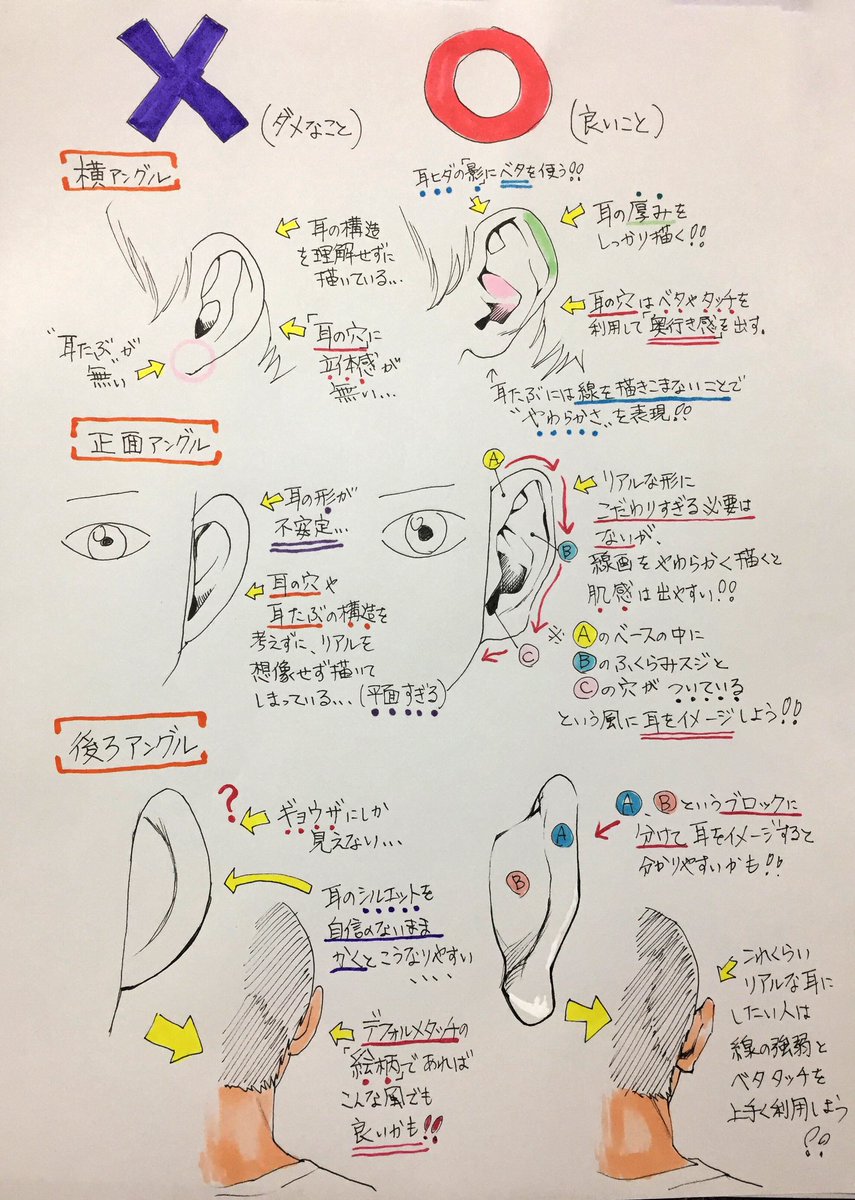 (ダメなこと)
(良いこと)
横アングル
耳の構造
を理解せずに
描いている...
「耳の穴」に
立体感が
無い...
"耳たぶ"が
無い
耳ヒダの「影」にベタを使う!!
耳の厚みを
しっかり描く!!
耳の穴はベタやタッチを
利用して「奥行き感」を出す。
↑
耳たぶには線を描きこまないことで
"やわらかさ"を表現!!
正面アングル
耳の形が
不安定...
耳の穴や
耳たぶの構造を
考えずに、リアルを
想像せず描いて
しまっている...(平面すぎる)
A
B
C
リアルな形に
こだわりすぎる必要は
ないが、
線画をやわらかく描くと
肌感は出やすい!!
※ Aのベースの中に
Bのふくらみスジと
Cの穴が ついている
という風に耳をイメージしよう!!
後ろアングル
?
ギョウザにしか
見えない...
耳のシルエットを
自信のないまま
かくとこうなりやすい
、、、、
デフォルメタッチの
「絵柄」であれば
こんな風でも
良いかも!!
A
B
A、Bというブロックに
分けて耳をイメージすると
分かりやすいかも!!
これくらい
リアルな耳に
したい人は
線の強弱と
ベタタッチを
上手く利用しよう
!!